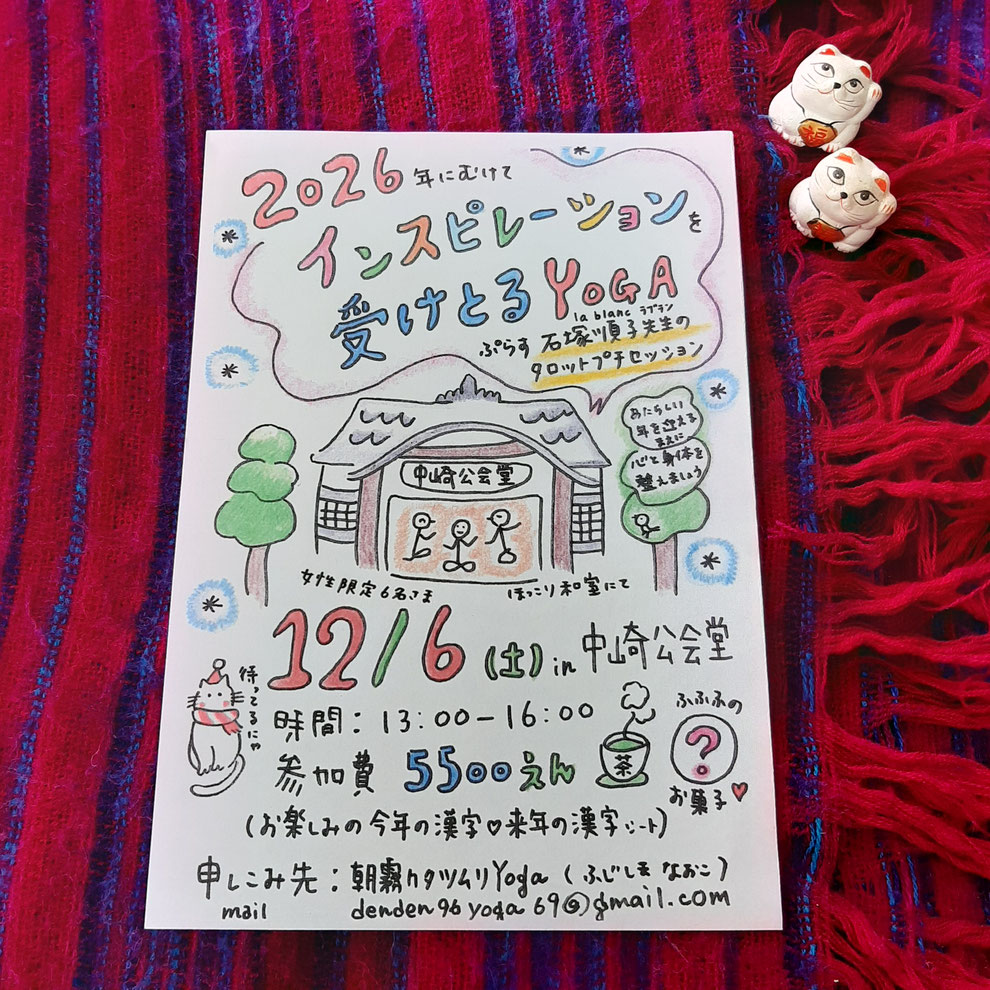 2026年にむけて
インスピレーションを
受けとるYOGA
la blanc ラブラン
ぷらす 石塚順子先生の
タロットプチセッション
あたらしい
年を迎える
まえに
心と身体を
整えましょう
中崎公会堂
女性限定6名さま
ほっこり和室にて
12/6(土)in中崎公会堂
待ってるにゃ
時間:13:00-16:00
参加費 5500えん
茶
ふふふの
?
お菓子
(お楽しみの今年の漢字♡来年の漢字シート)
申しこみ先:朝霧カタツムリYoga(ふじしまなおこ)
mail denden96yoga69@gmail.com
福